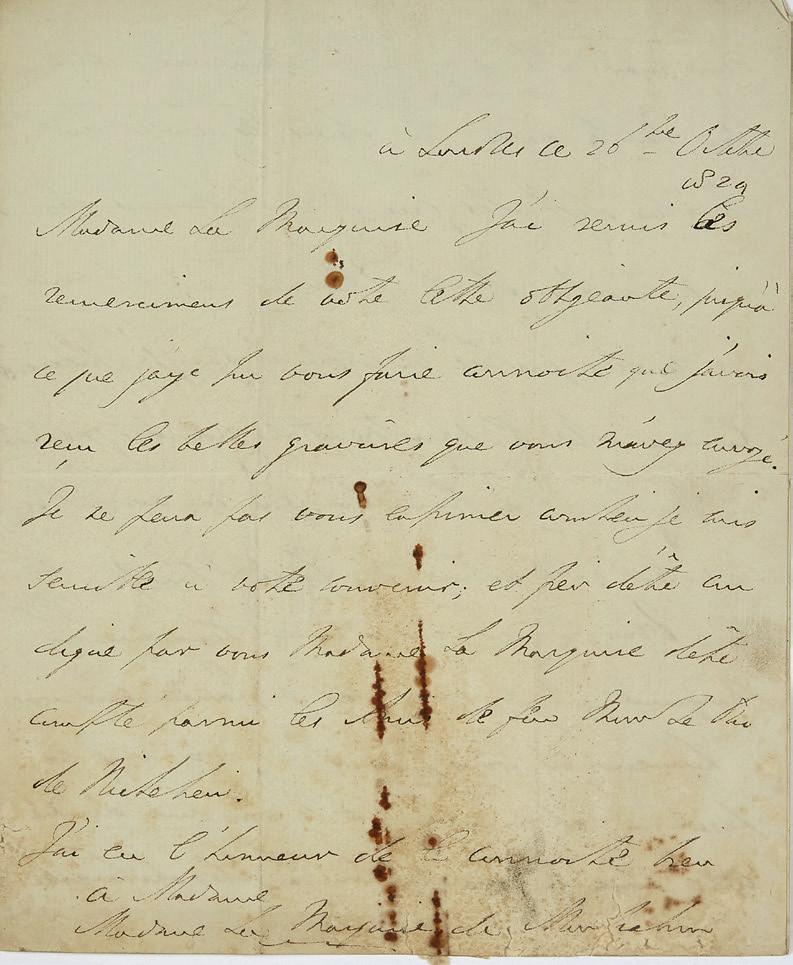 à Londres ce 26 bre Octobre
1829
Madame La Marquise J'ai remis les
remercimens de votre lettre obligeante, jusqu'à
ce que j'aye pu vous faire connoitre que j'avois
reçu les belles gravures que vous m'avez envoyé.
Je ne peux pas vous exprimer combien je suis
sensible à votre souvenir; et fier d'être cru
digne par vous Madame La Marquise d'être
compté parmi les Amis de feu Monsr Le Duc
de Richelieu.
J'ai eu l'honneur de le connoitre bien
à Madame
Madame La Marquise de